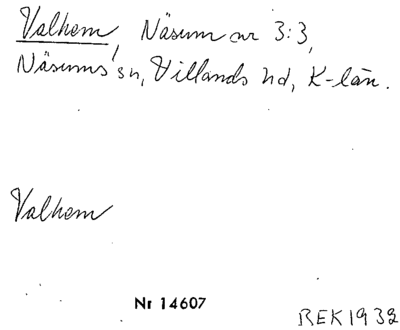 Valhem, Näsum nr 3:3,
Näsums sn, Villands hd, K-län.
Valhem
Nr 14607
REK1932